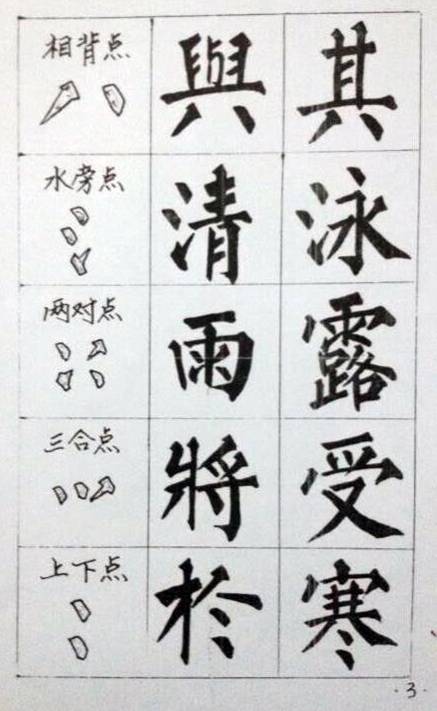 相背点 與 其
水旁点 清 泳
两对点 雨 露
三合点 將 受
上下点 於 寒
·3·